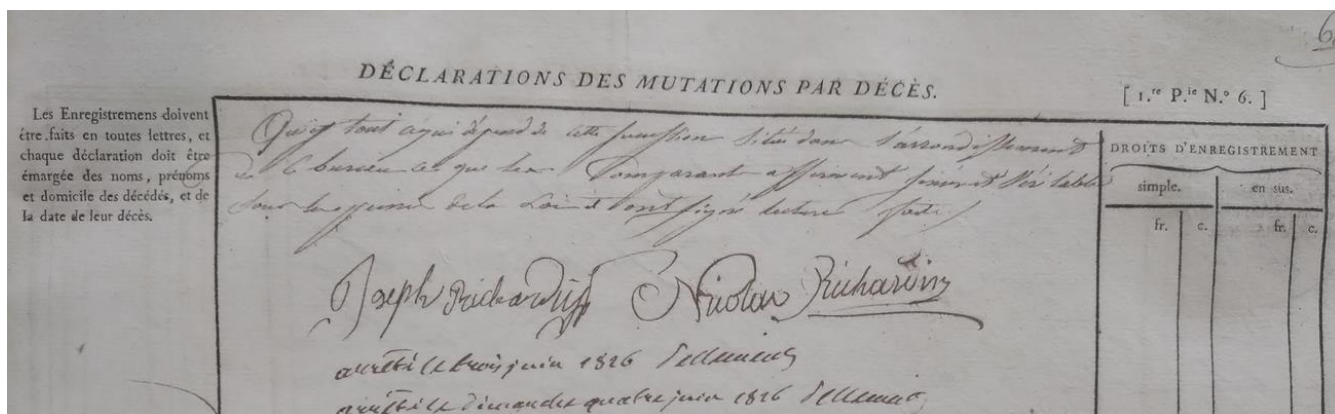 DÉCLARATIONS DES MUTATIONS PAR DÉCÈS.
[ 1.re P.ie N.° 6. ]
Les Enregistremens doivent
être faits en toutes lettres, et
chaque déclaration doit être
émargée des noms, prénoms
et domicile des décédés, et de
la date de leur décès.
Qui est tout ce qui dépend de cette succession située dans l'arrondissement
de ce bureau ce que les Comparants affirment sincère et Véritable
sous les peines de la Loi et ont signé lecture faite
DROITS D'ENREGISTREMENT
simple. en sus.
fr. c. fr. c.
Joseph Richardin Nicolas Richardin
arrêté le trois juin 1826
arrêté le dimanche quatre juin 1826